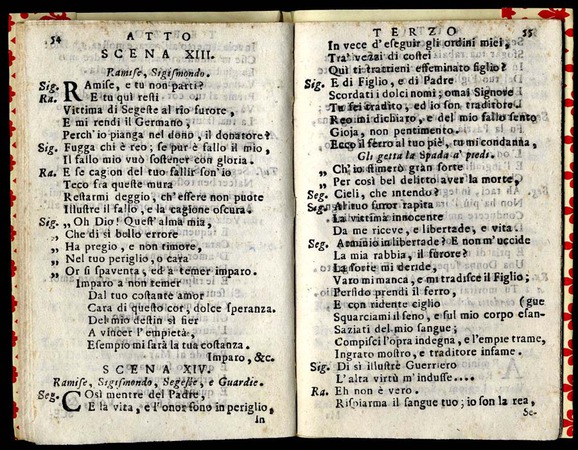 54
ATTO
SCENA XIII.
Ramise, Sigismondo.
Sig. RAmise, e tu non parti?
Ra. E tu quì resti
Vittima di Segeste al rio furore,
E mi rendi il Germano,
Perch'io pianga nel dono, il donatore?
Sig. Fugga chi è reo; se pur è fallo il mio,
Il fallo mio vuò sostener con gloria.
Ra. E se cagion del tuo fallir son'io
Teco fra queste mura
Restarmi deggio, ch'essere non puote
Illustre il fallo, e la cagione oscura.
Sig. „ Oh Dio! Quest'alma mia,
„ Che di sì bello errore
„ Ha pregio, e non timore,
„ Nel tuo periglio, o cara
„ Or si spaventa, ed à temer imparo.
Imparo a non temer
Dal tuo costante amor
Cara di questo cor, dolce speranza.
Del mio destin sì fier
A vincer l'empietà,
Esempio mi sarà la tua costanza.
Imparo, &c.
SCENA XIV.
Ramise, Sigismondo, Segeste, e Guardie.
Seg. COsì mentre del Padre,
E la vita, e l'onor sono in periglio,
In
TERZO
55
In vece d'eseguir gli ordini miei,
Tra' vezzi di costei
Quì ti trattieni effeminato figlio?
Sig. E di Figlio, e di Padre
Scordati i dolci nomi; omai Signore
Tu sei tradito, ed io son traditore.
Reo mi dichiaro, e del mio fallo sento
Gioja, non pentimento.
Ecco il ferro al tuo piè, tu mi condanna,
Gli getta la Spada a' piedi.
„ Ch'io stimerò gran sorte
„ Per così bel delitto aver la morte,
Seg. Cieli, che intendo?
Sig. Al tuo furor rapita
La vittima innocente
Da me riceve, e libertade, e vita.
Seg. Arminio in libertade? E non m'uccide
La mia rabbia, il furore?
La sorte mi deride,
Varo mi manca, e mi tradisce il Figlio;
Perfido prendi il ferro,
E con ridente ciglio (gue
Squarciami il seno, e sul mio corpo esan-
Saziati del mio sangue;
Compisci l'opra indegna, e l'empie trame,
Ingrato mostro, e traditore infame.
Sig. Di sì illustre Guerriero
L'alta virtù m'indusse....
Ra. Eh non è vero.
Risparma il sangue tuo; io son la rea,
Se-